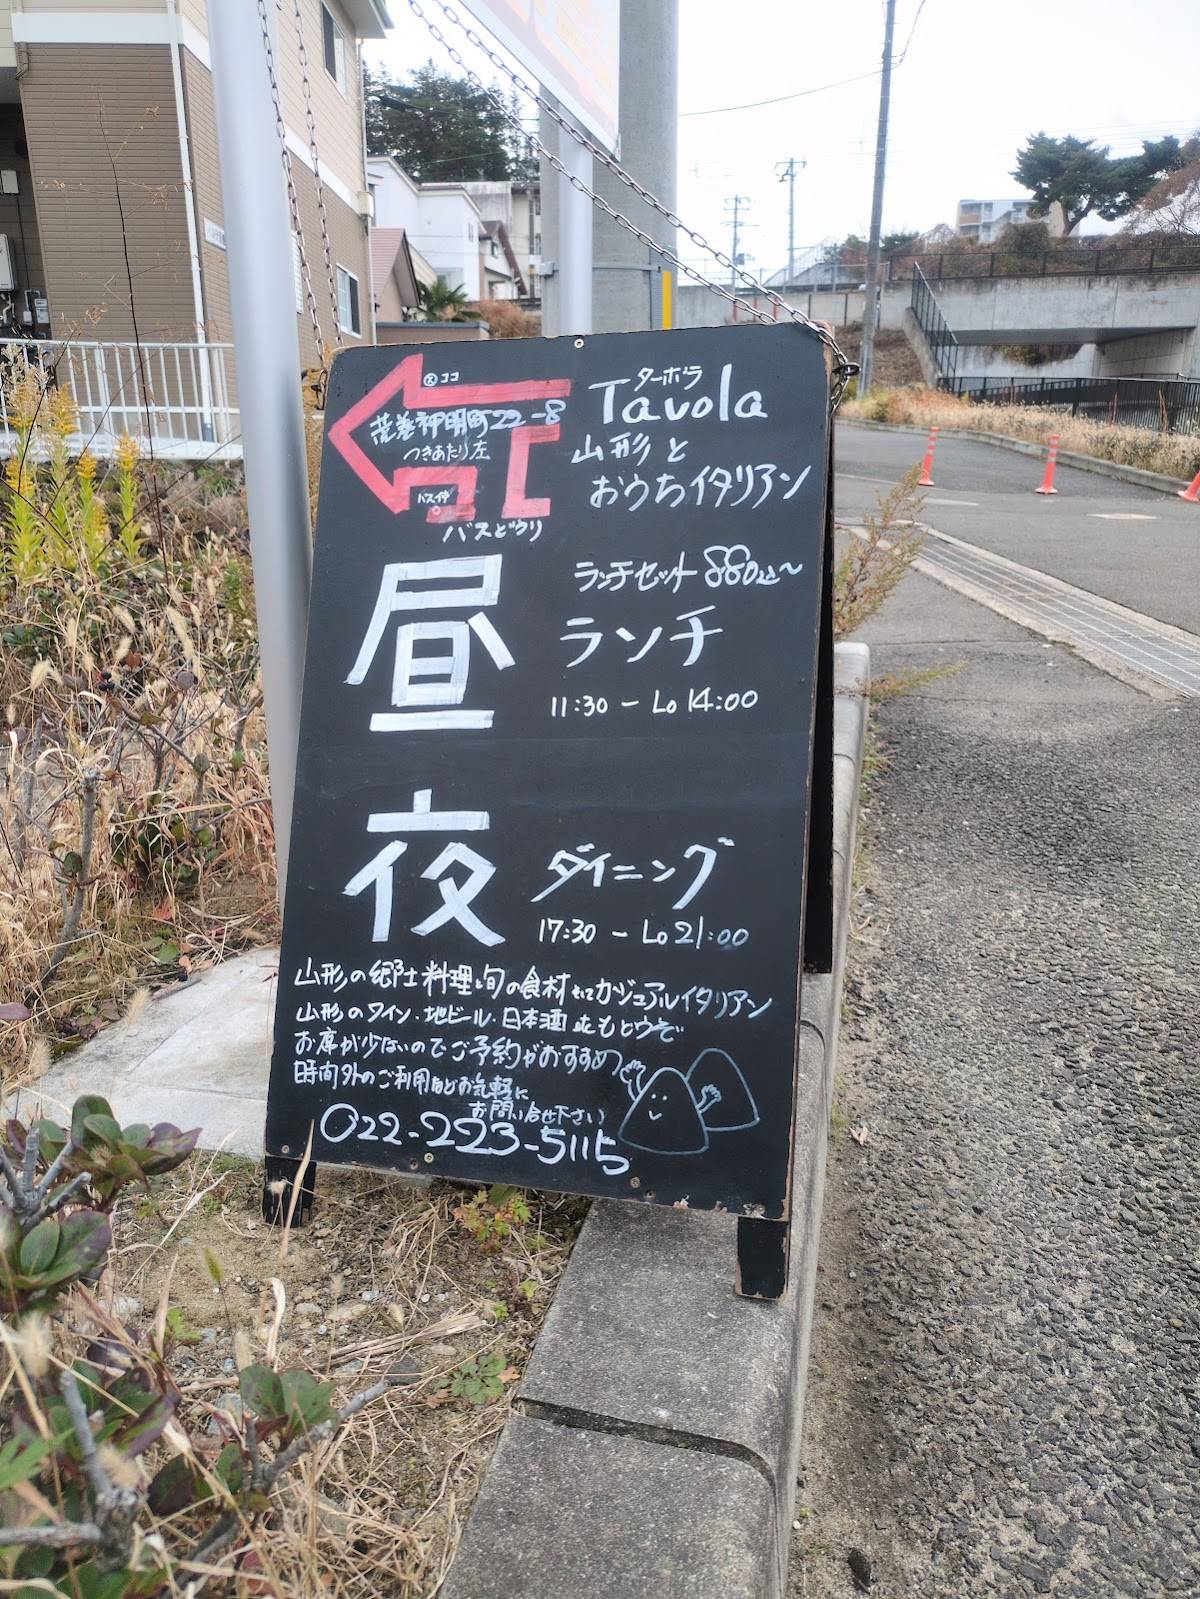 ココ
荒巻神明町22-8
つきあたり左
バス停
バスどうり
ターボラ
Tavola
山形と
おうちイタリアン
昼
ランチセット 880込〜
ランチ
11:30 - Lo 14:00
夜
ダイニング
17:30 - Lo 21:00
山形の郷土料理と旬の食材そしてカジュアルイタリアン
山形のワイン・地ビール・日本酒等もどうぞ
お席が少ないのでご予約がおすすめ
時間外のご利用などお気軽に
お問い合せ下さい
022-223-5115